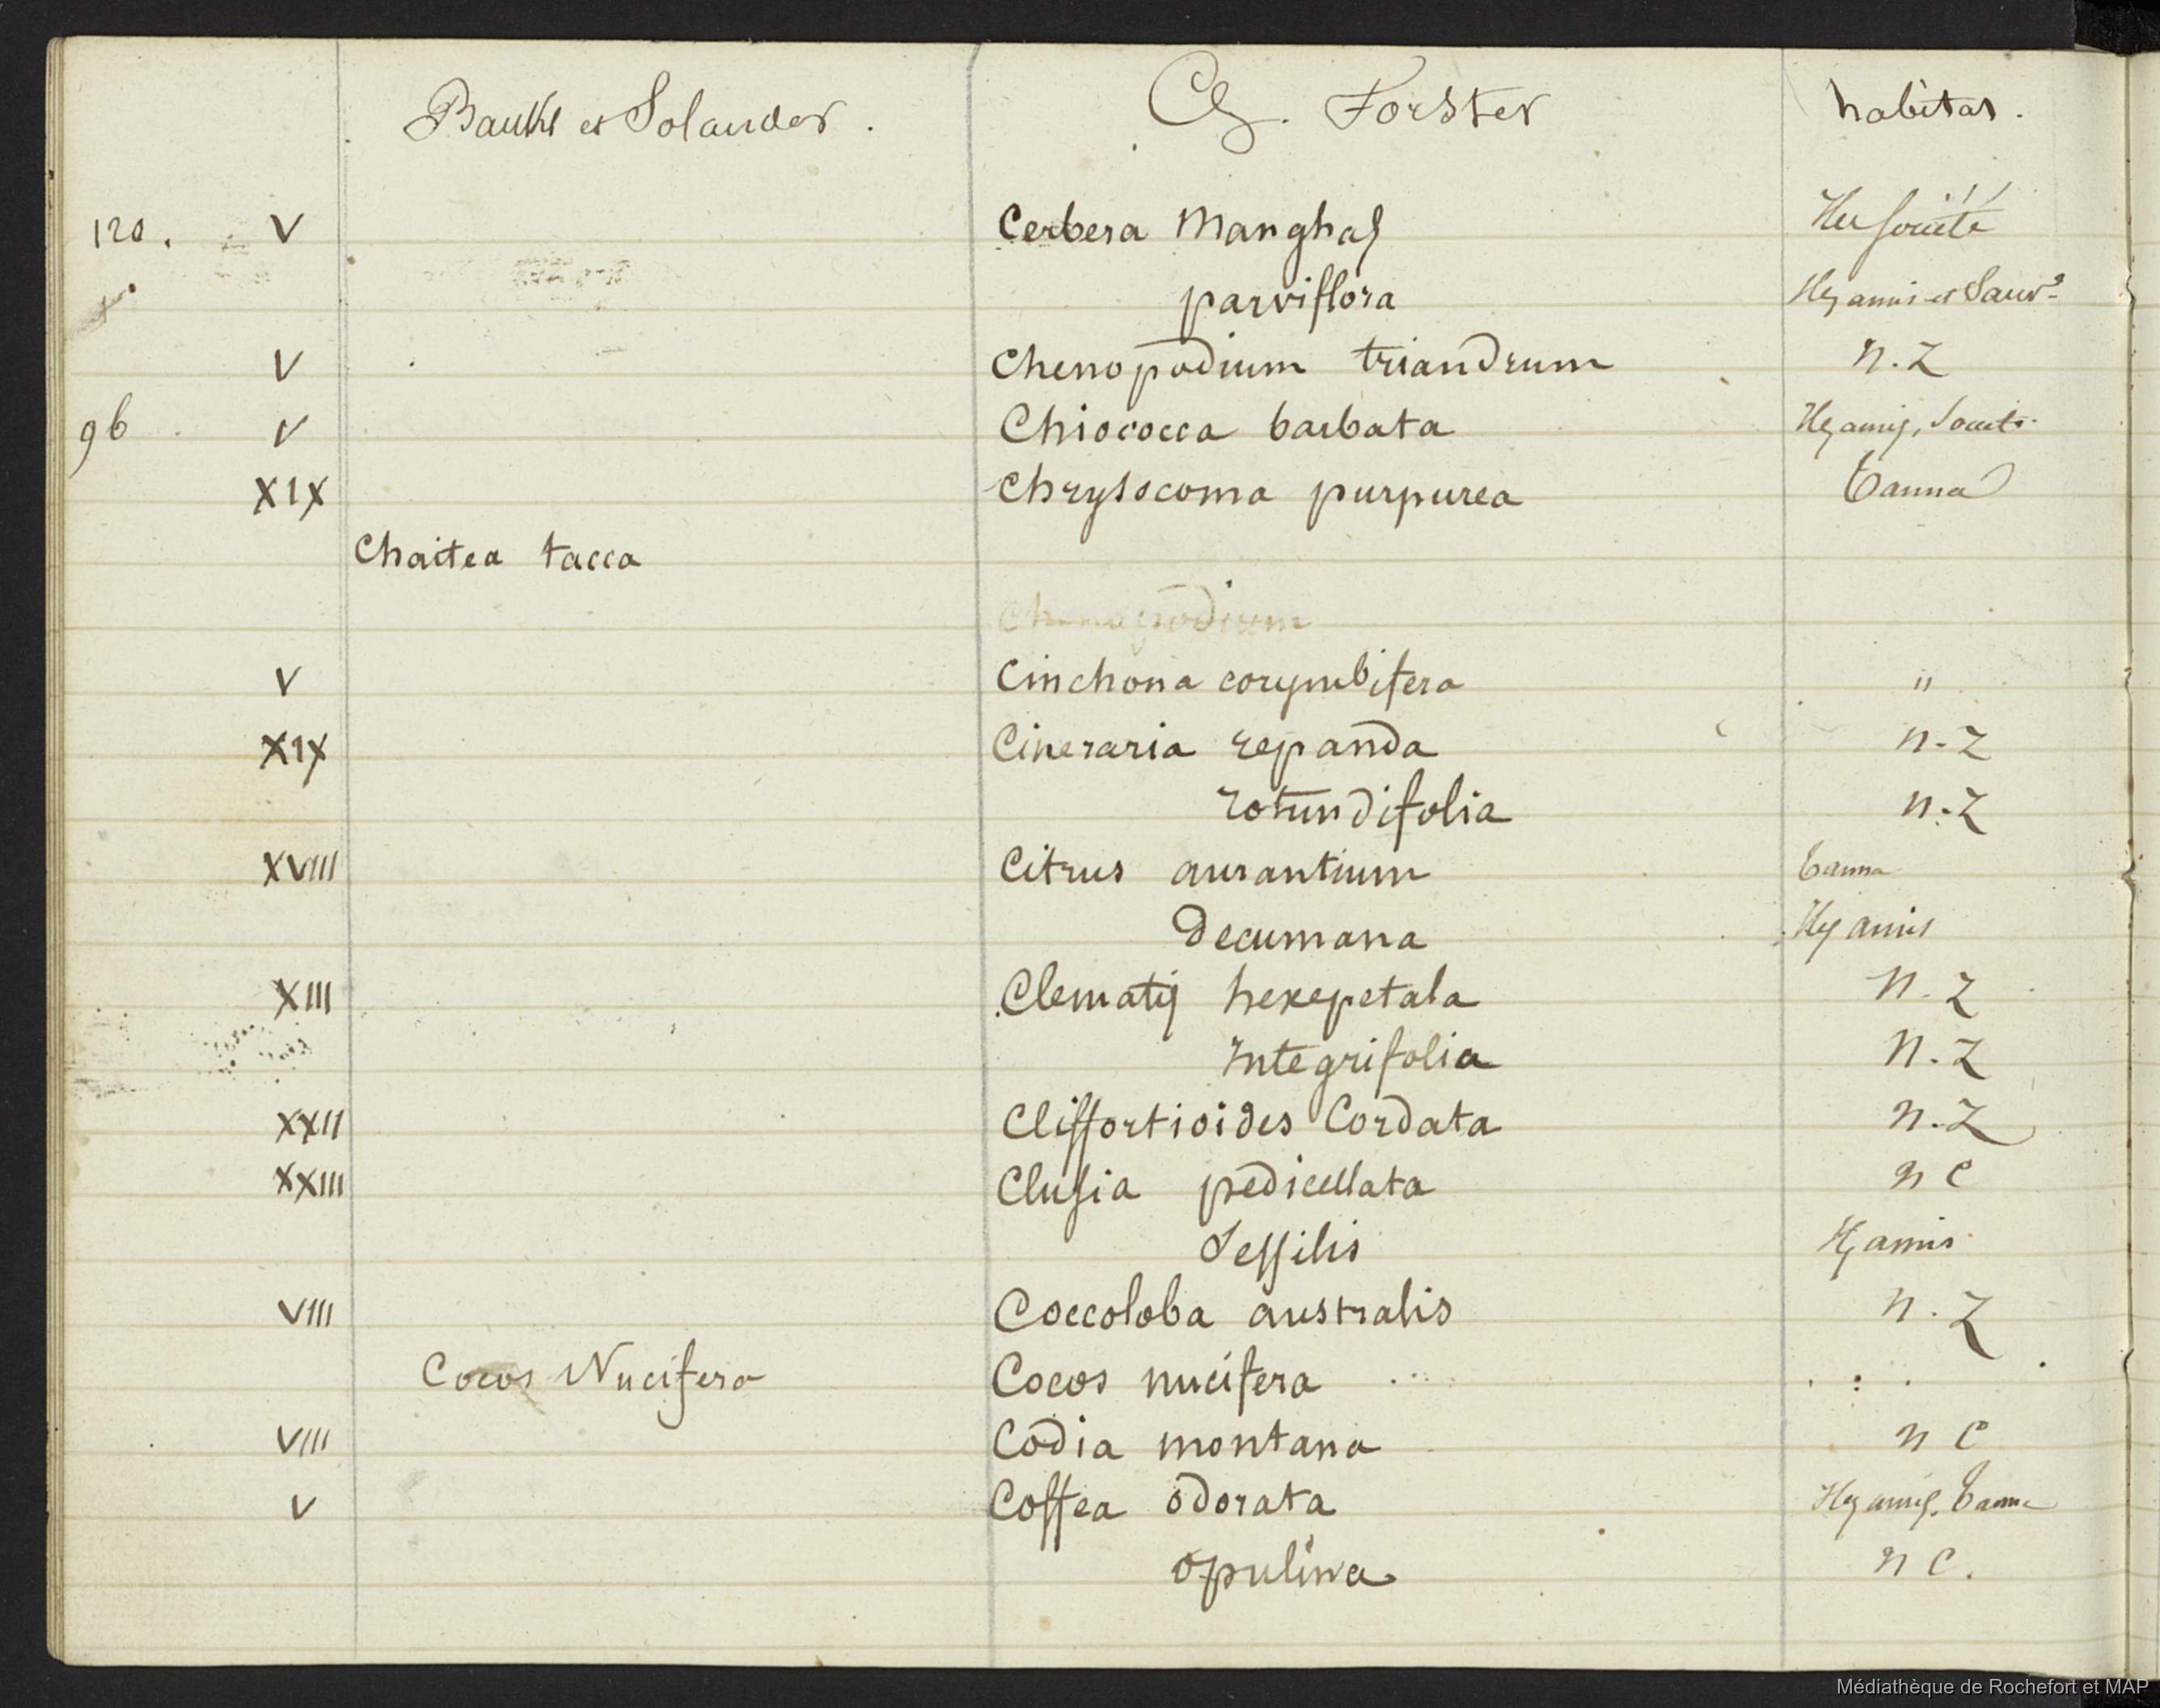 Banks et Solander. G. Forster habitat.
120. V Cerbera Manghas Iles société
parviflora
V Chenopodium triandrum n.Z
96 V Chiococca barbata
XIX Chrysocoma purpurea Tanna
Chaitea tacca
Chenopodium
V Cinchona corymbifera "
XIX Cineraria repanda n.Z
rotundifolia n.Z
XVIII Citrus aurantium Tanna
Decumana Iles amis
XIII Clematis hexepetala n.Z
integrifolia n.Z
XXII Cliffortioides Cordata n.Z
XXIII Clusia pedicellata n C
Sessilis Is amis
VIII Coccoloba australis n.Z
Cocos Nucifera Cocos nucifera
VIII Codia montana n C
V Coffea odorata Iles amis, Tanna
opulina n C.
Médiathèque de Rochefort et MAP